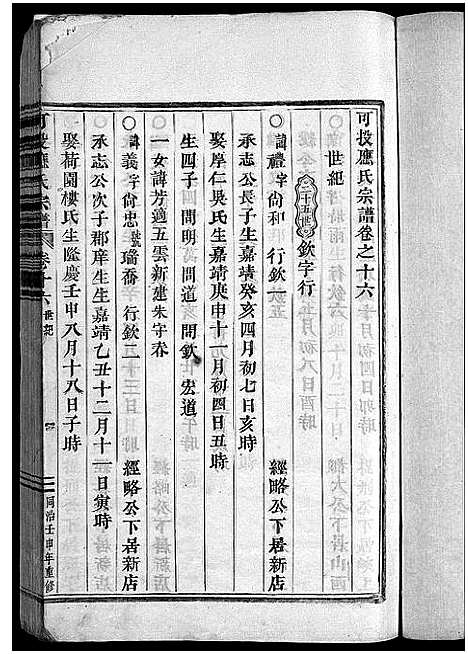 可投應氏宗譜卷之十六
世紀
二十五世 欽字行
○諱禮 字尚和 行欽一 經略公下居新店
承志公長子生嘉靖癸亥四月初七日亥時
娶岸仁吳氏生嘉靖庚申十一月初四日丑時
生四子 問明 問道 問欽 宏道
一女諱芳適五雲新建朱字春
○諱義 字尚忠 號瑞喬 行欽二 經略公下居新店
承志公次子郡庠生生嘉靖乙丑十二月十一日寅時
娶荷園樓氏生隆慶壬申八月十八日子時
可投應氏宗譜 卷十六 世紀
同治壬申年重修